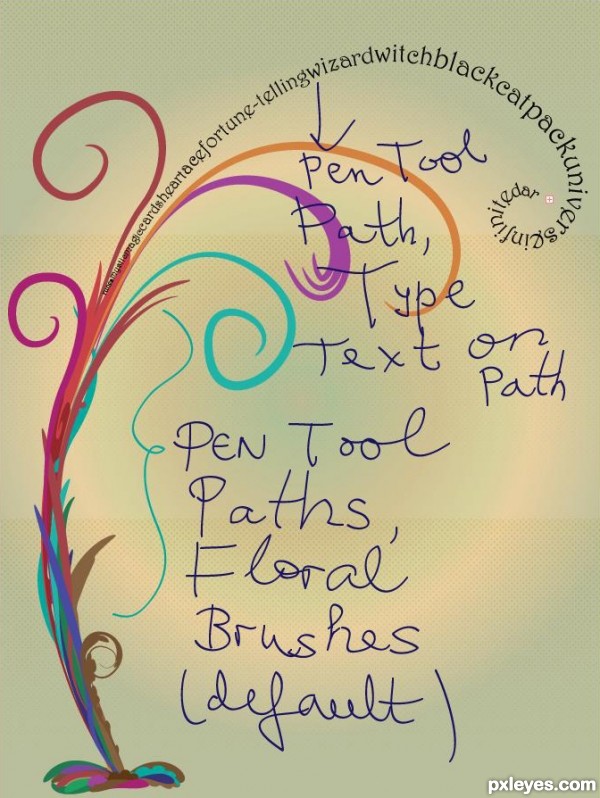 cardsheartacefortune-tellingwizardwitchblackcatpackuniverseinfinitedar
Pen Tool
Path,
Type
Text on
Path
PEN Tool
Paths,
Floral
Brushes
(default)
pxleyes.com